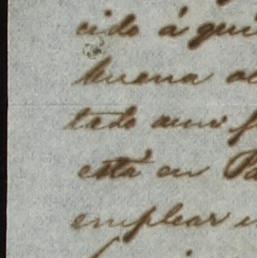 cido á qui
buena
tado aun
está en Pa
emplear